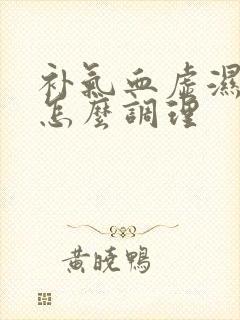 补氣血虚濕
怎麼調理
黄曉鴨